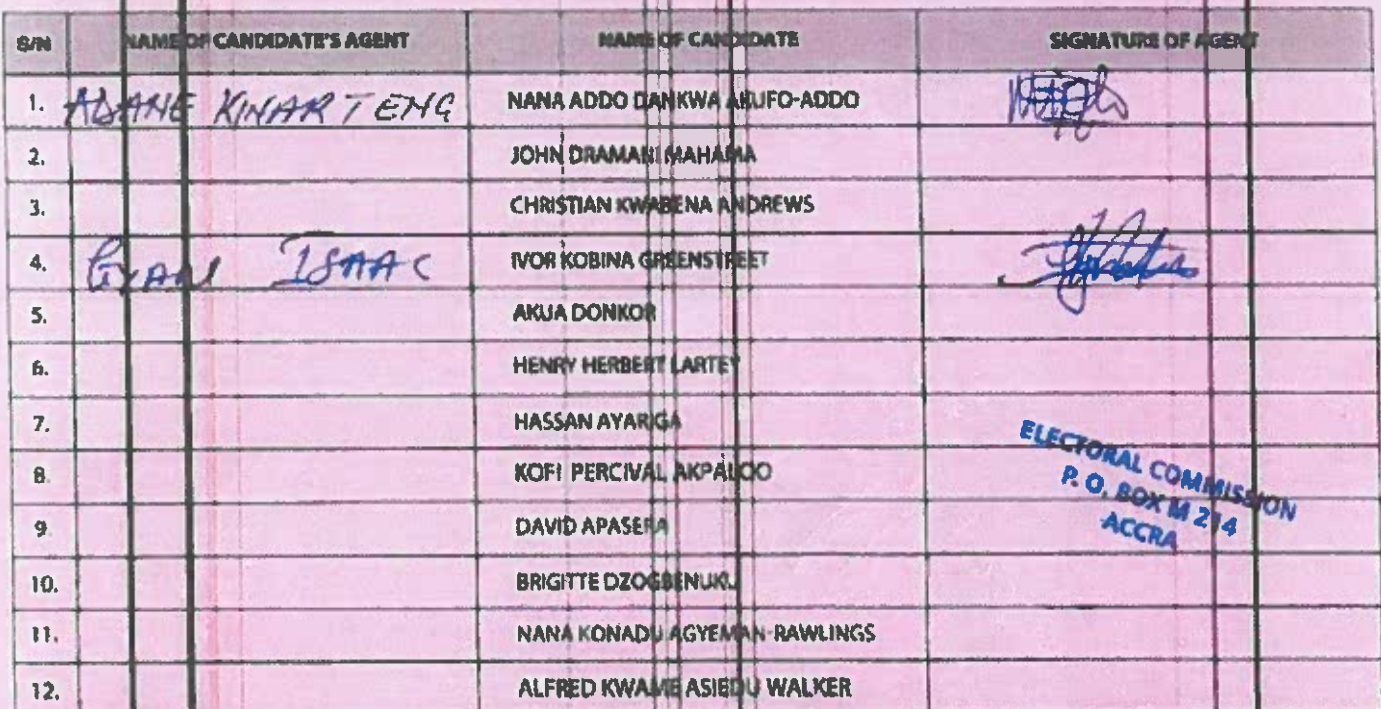 S/N NAME OF CANDIDATE'S AGENT NAME OF CANDIDATE SIGNATURE OF AGENT
1. NANA ADDO DANKWA AKUFO-ADDO
2. JOHN DRAMANI MAHAMA
3. CHRISTIAN KWABENA ANDREWS
4. ISAAC IVOR KOBINA GREENSTREET
5. AKUA DONKOR
6. HENRY HERBERT LARTEY
7. HASSAN AYARIGA
8. KOFI PERCIVAL AKPALOO
9. DAVID APASERA
10. BRIGITTE DZOGBENUKU
11. NANA KONADU AGYEMAN-RAWLINGS
12. ALFRED KWAME ASIEDU WALKER
ELECTORAL COMMISSION
P. O. BOX M 214
ACCRA